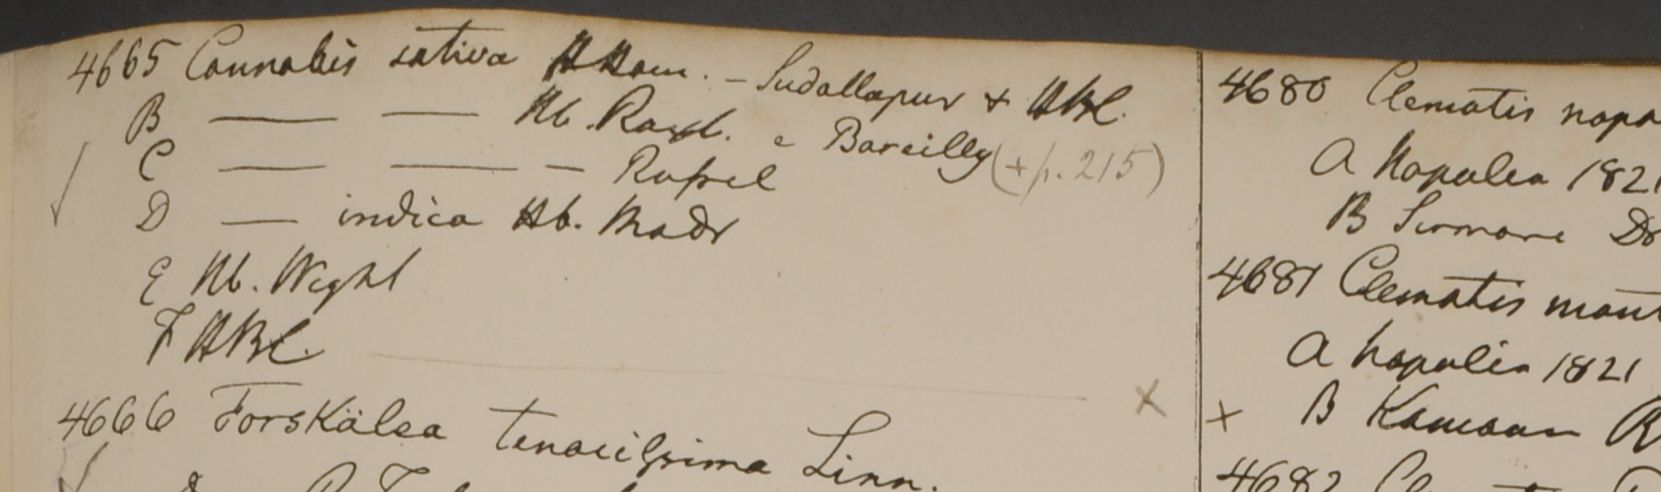 4665 Cannabis sativa HHam. – Sudallapur + HBC.
B —— —— Hb. Roxb. e Bareilly (+ p. 215)
C —— —— – Rupel
D —— indica Hb. Madr
E Hb. Wight
F HBC.
4666 Forskälea tenacissima Linn.
4680 Clematis napa
A Napalia 1821
B Sirmore Dr
4681 Clematis mont
A Napalia 1821
B Kamaon R
4682